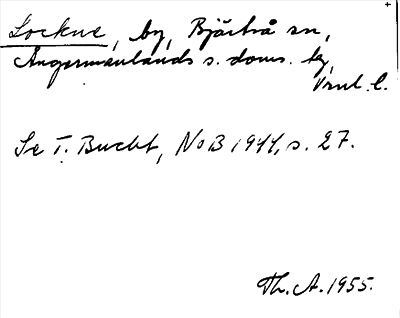 Lockne, by, Bjärtrå sn,
Ångermanlands s. doms. tg,
Vnl. l.
Se T. Bucht, NoB 1944, s. 27.
Th. A. 1955.